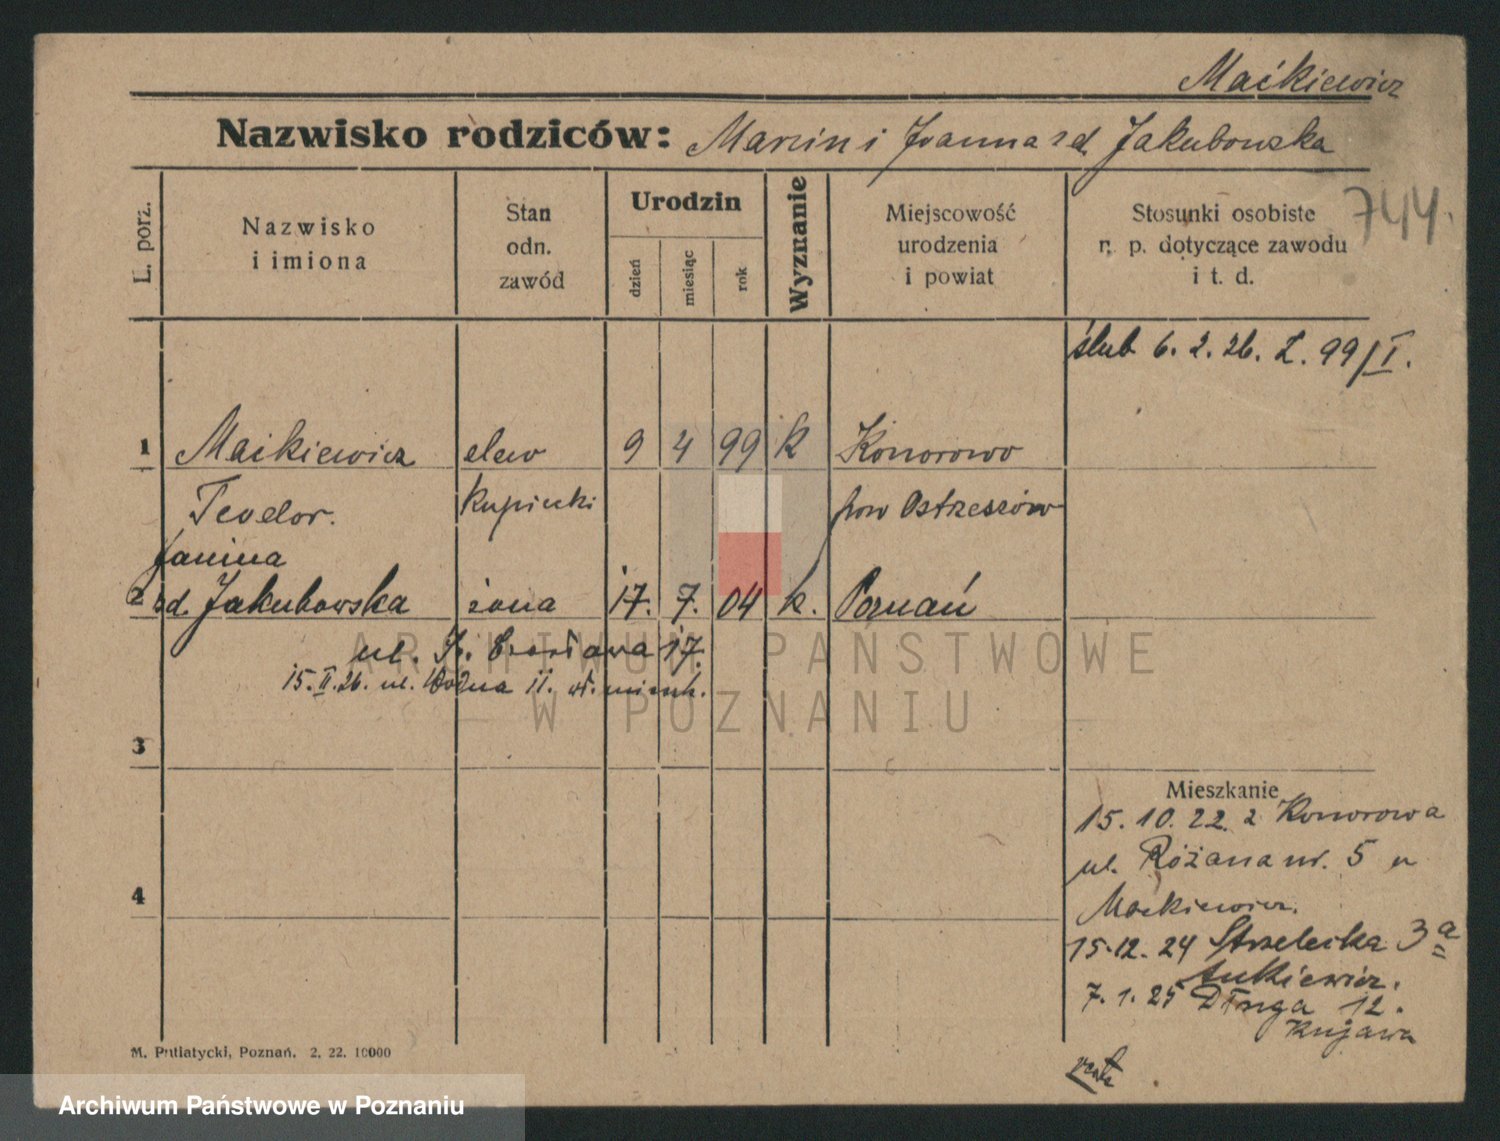 Maćkiewicz
Nazwisko rodziców: Marcin i Joanna zd. Jakubowska
744.
L. porz.
Nazwisko
i imiona
Stan
odn.
zawód
Urodzin
dzień
miesiąc
rok
Wyznanie
Miejscowość
urodzenia
i powiat
Stosunki osobiste
n. p. dotyczące zawodu
i t. d.
ślub 6. 2. 26. L. 99/I.
1 Maćkiewicz elew 9 4 99 k Konorowo
Teodor. kupiecki pow Ostrzeszów
Janina
2 zd. Jakubowska żona 17. 7. 04 k. Poznań
ul. 17.
15. II. 26. ul. Woźna 11. wł. mieszk.
ARCHIWUM PAŃSTWOWE
W POZNANIU
3
4
Mieszkanie
15. 10. 22. z Konorowa
ul. Różana nr. 5 u
Maćkiewicz.
15.12. 24 Strzelecka 3a
7. 1. 25 Długa 12.
Kujawa
M. Putiatycki, Poznań. 2. 22. 10000
Archiwum Państwowe w Poznaniu